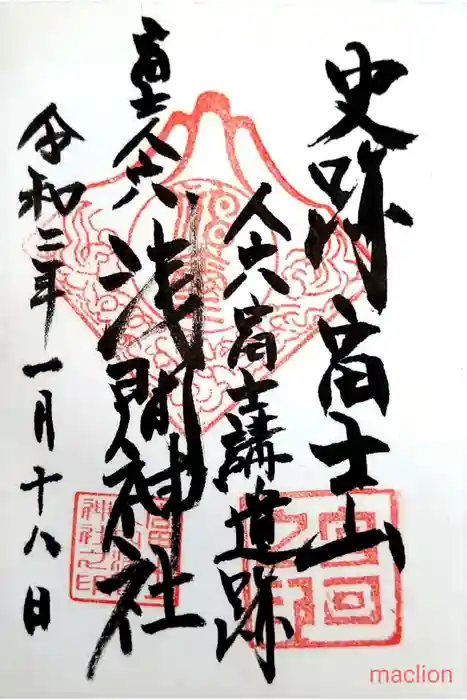 史跡富士山
人穴富士講遺跡
富士人穴
浅間神社
令和二年一月十八日
maclion